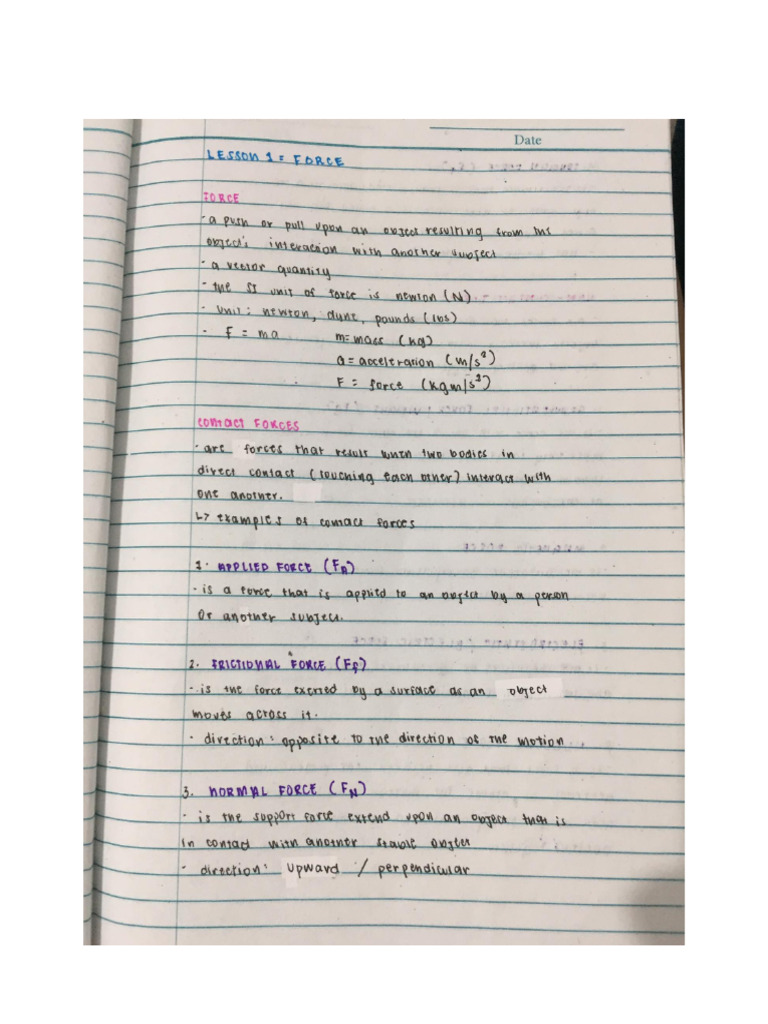 Date
LESSON 1 = FORCE
FORCE
- a push or pull upon an object resulting from the
object's interaction with another subject
- a vector quantity
- the SI unit of force is newton (N)
- unit: newton, dyne, pounds (lbs)
- F = ma m= mass (kg)
a = acceleration (m/s²)
F = force (kgm/s²)
CONTACT FORCES
- are forces that result when two bodies in
direct contact (touching each other) interact with
one another.
↳ examples of contact forces
1. APPLIED FORCE (FA)
- is a force that is applied to an object by a person
or another subject.
2. FRICTIONAL FORCE (FF)
- is the force exerted by a surface as an object
moves across it.
- direction: opposite to the direction of the motion
3. NORMAL FORCE (FN)
- is the support force extend upon an object that is
in contact with another stable object
- direction: upward / perpendicular